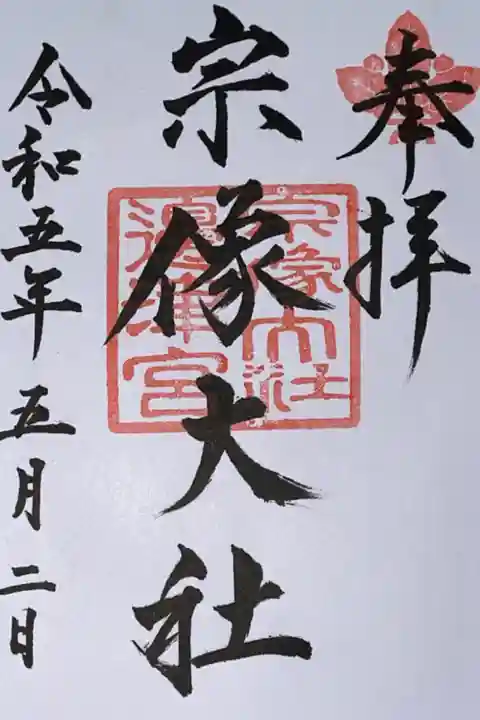 奉拝
宗像大社
宗像大社
邊津宮
令和五年 五月二日